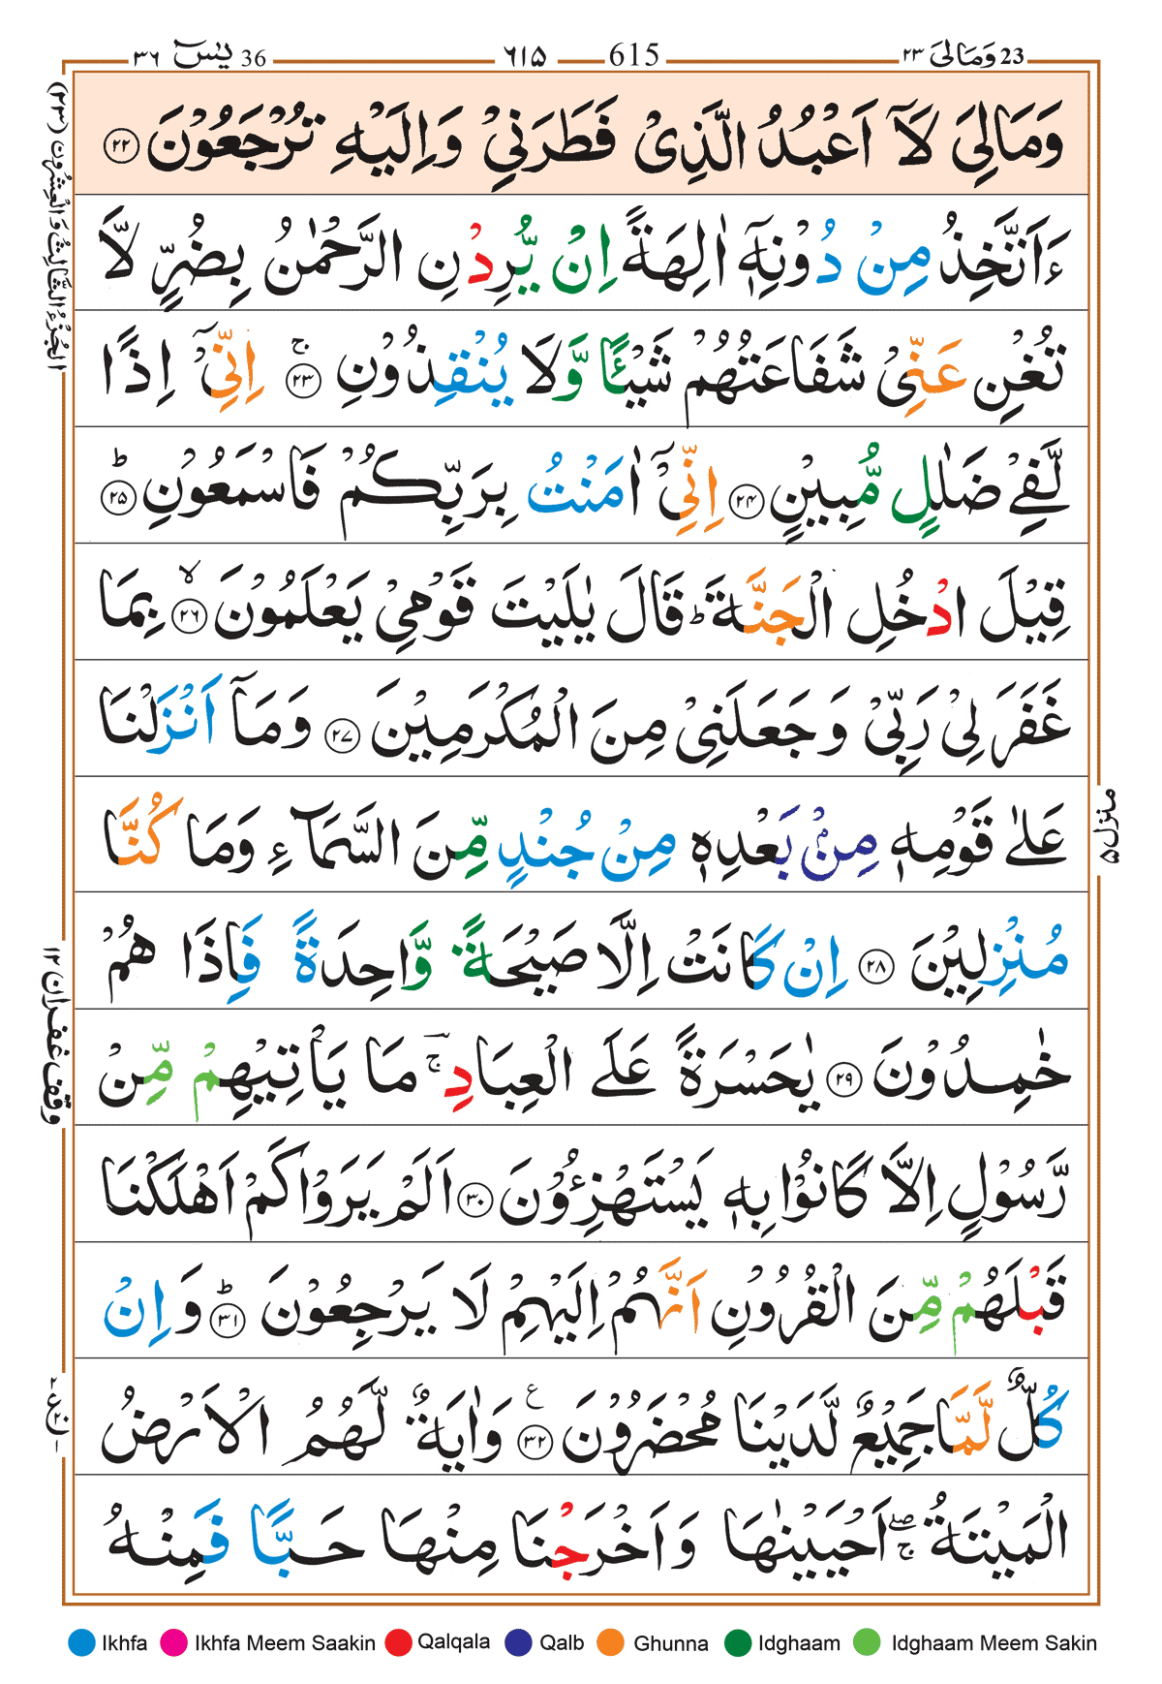 36 يٰسٓ ٣٦
615 ٦١٥
23 وَمَالِیَ ٢٣
وَمَالِیَ لَاۤ اَعْبُدُ الَّذِیْ فَطَرَنِیْ وَاِلَیْهِ تُرْجَعُوْنَ ﴿۲۲﴾
ءَاَتَّخِذُ مِنْ دُوْنِهٖۤ اٰلِهَةً اِنْ یُّرِدْنِ الرَّحْمٰنُ بِضُرٍّ لَّا
تُغْنِ عَنِّیْ شَفَاعَتُهُمْ شَیْـًٔا وَّلَا یُنْقِذُوْنِ ﴿۲۳﴾ۚ اِنِّیْۤ اِذًا
لَّفِیْ ضَلٰلٍ مُّبِیْنٍ ﴿۲۴﴾ اِنِّیْۤ اٰمَنْتُ بِرَبِّكُمْ فَاسْمَعُوْنِ ﴿۲۵﴾ؕ
قِیْلَ ادْخُلِ الْجَنَّةَؕ قَالَ یٰلَیْتَ قَوْمِیْ یَعْلَمُوْنَ ﴿۲۶﴾ۙ بِمَا
غَفَرَ لِیْ رَبِّیْ وَجَعَلَنِیْ مِنَ الْمُكْرَمِیْنَ ﴿۲۷﴾ وَمَاۤ اَنْزَلْنَا
عَلٰی قَوْمِهٖ مِنْۢ بَعْدِهٖ مِنْ جُنْدٍ مِّنَ السَّمَآءِ وَمَا كُنَّا
مُنْزِلِیْنَ ﴿۲۸﴾ اِنْ كَانَتْ اِلَّا صَیْحَةً وَّاحِدَةً فَاِذَا هُمْ
خٰمِدُوْنَ ﴿۲۹﴾ یٰحَسْرَةً عَلَی الْعِبَادِۚ مَا یَاْتِیْهِمْ مِّنْ
رَّسُوْلٍ اِلَّا كَانُوْا بِهٖ یَسْتَهْزِءُوْنَ ﴿۳۰﴾ اَلَمْ یَرَوْا كَمْ اَهْلَكْنَا
قَبْلَهُمْ مِّنَ الْقُرُوْنِ اَنَّهُمْ اِلَیْهِمْ لَا یَرْجِعُوْنَ ﴿۳۱﴾ؕ وَاِنْ
كُلٌّ لَّمَّا جَمِیْعٌ لَّدَیْنَا مُحْضَرُوْنَ ﴿۳۲﴾ وَاٰیَةٌ لَّهُمُ الْاَرْضُ
الْمَیْتَةُۚۖ اَحْیَیْنٰهَا وَاَخْرَجْنَا مِنْهَا حَبًّا فَمِنْهُ
الجُزْءُ الثَّالِثُ وَالعِشْرُون (٢٣)
وقف غفران ١٢
منزل ٥
Ikhfa Ikhfa Meem Saakin Qalqala Qalb Ghunna Idghaam Idghaam Meem Sakin